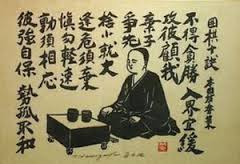 囲棋十訣
不得貪勝 入界宜緩
攻彼顧我
棄子
争先
捨小就大
逢危須棄
慎勿軽速
動須相応
彼強自保 勢孤取和